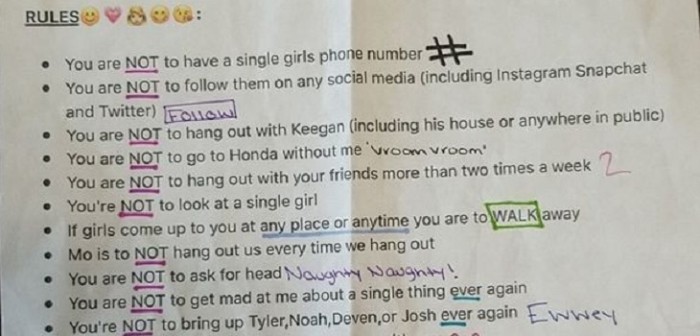 RULES😊💗👸😋😘:
• You are NOT to have a single girls phone number #
• You are NOT to follow them on any social media (including Instagram Snapchat
and Twitter) Follow
• You are NOT to hang out with Keegan (including his house or anywhere in public)
• You are NOT to go to Honda without me 'vroom vroom'
• You are NOT to hang out with your friends more than two times a week 2
• You're NOT to look at a single girl
• If girls come up to you at any place or anytime you are to WALK away
• Mo is to NOT hang out us every time we hang out
• You are NOT to ask for head Naughty Naughty!
• You are NOT to get mad at me about a single thing ever again
• You're NOT to bring up Tyler,Noah,Deven,or Josh ever again Ewwey